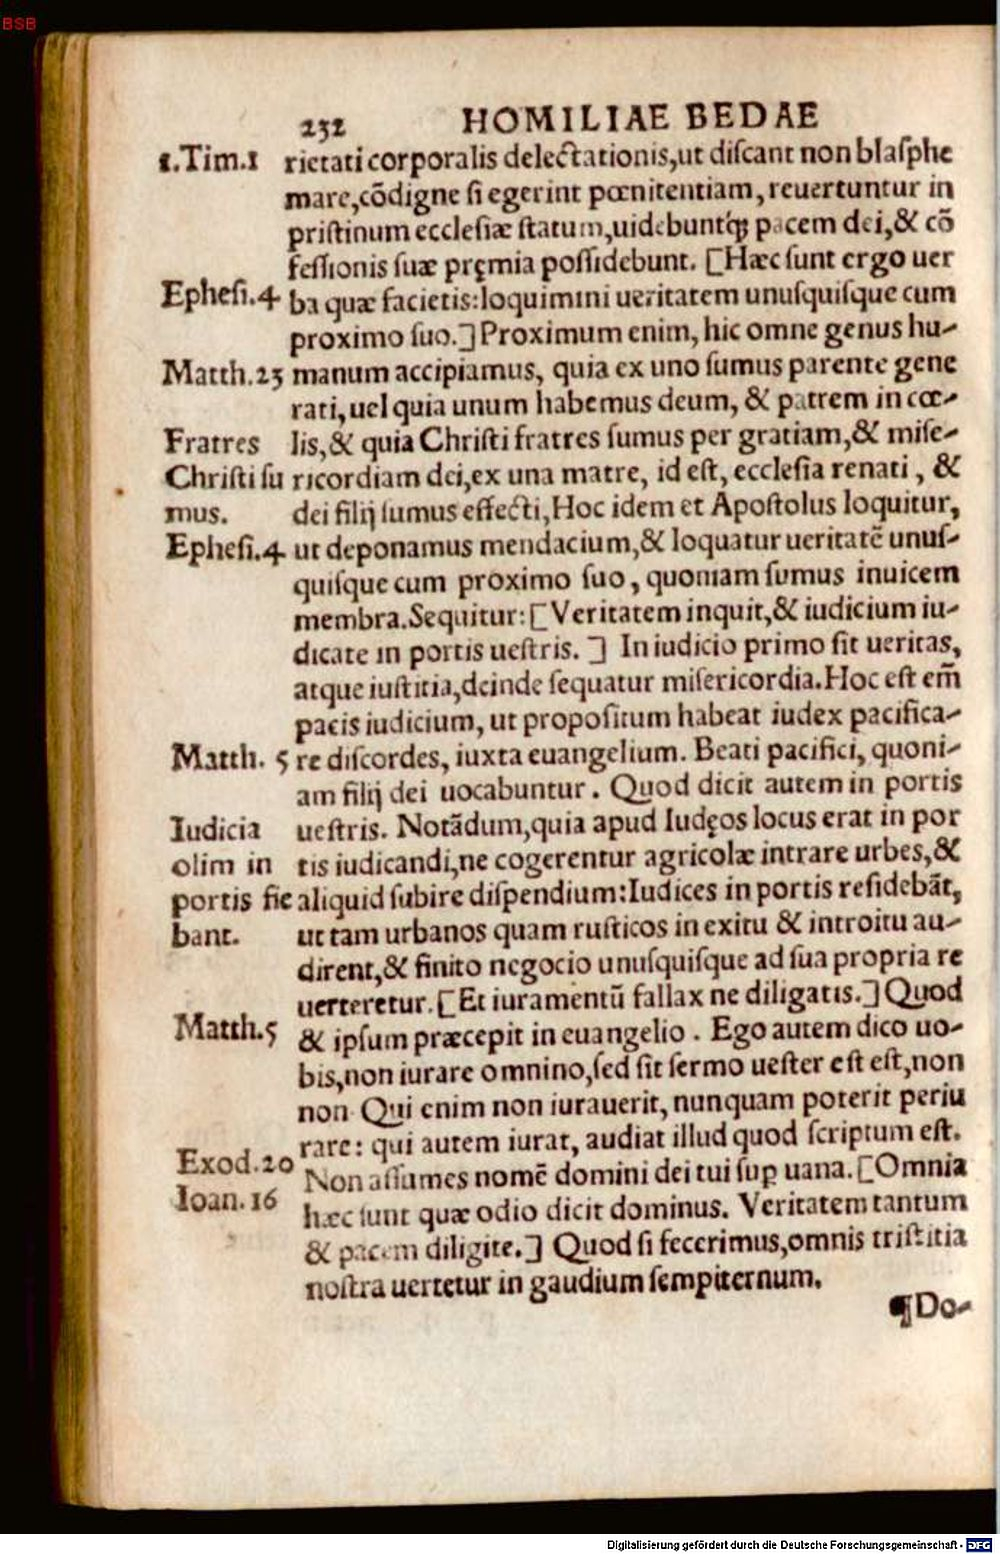 BSB
232 HOMILIAE BEDAE
1.Tim.1 rietati corporalis delectationis,ut discant non blasphe
mare,cõdigne si egerint pœnitentiam, reuertuntur in
pristinum ecclesiæ statum,uidebuntq́; pacem dei,& cõ
fessionis suæ pręmia possidebunt. [Hæc sunt ergo uer
Ephesi.4 ba quæ facietis:loquimini ueritatem unusquisque cum
proximo suo.] Proximum enim, hic omne genus hu-
Matth.23 manum accipiamus, quia ex uno sumus parente gene
rati, uel quia unum habemus deum, & patrem in cœ-
Fratres lis,& quia Christi fratres sumus per gratiam,& mise-
Christi su ricordiam dei,ex una matre, id est, ecclesia renati, &
mus. dei filij sumus effecti,Hoc idem et Apostolus loquitur,
Ephesi.4 ut deponamus mendacium,& loquatur ueritatẽ unus-
quisque cum proximo suo, quoniam sumus inuicem
membra.Sequitur:[Veritatem inquit,& iudicium iu-
dicate in portis uestris.] In iudicio primo sit ueritas,
atque iustitia,deinde sequatur misericordia.Hoc est em̃
pacis iudicium, ut propositum habeat iudex pacifica-
Matth. 5 re discordes, iuxta euangelium. Beati pacifici, quoni-
am filij dei uocabuntur. Quod dicit autem in portis
Iudicia uestris. Notãdum,quia apud Iudęos locus erat in por
olim in tis iudicandi,ne cogerentur agricolæ intrare urbes,&
portis fie aliquid subire dispendium:Iudices in portis residebãt,
bant. ut tam urbanos quam rusticos in exitu & introitu au-
dirent,& finito negocio unusquisque ad sua propria re
uerteretur.[Et iuramentũ fallax ne diligatis.] Quod
Matth.5 & ipsum præcepit in euangelio. Ego autem dico uo-
bis,non iurare omnino,sed sit sermo uester est est,non
non. Qui enim non iurauerit, nunquam poterit periu
rare: qui autem iurat, audiat illud quod scriptum est.
Exod.20 Non assumes nomẽ domini dei tui suꝑ uana.[Omnia
Ioan.16 hæc sunt quæ odio dicit dominus. Veritatem tantum
& pacem diligite.] Quod si fecerimus,omnis tristitia
nostra uertetur in gaudium sempiternum.
¶Do-
Digitalisierung gefördert durch die Deutsche Forschungsgemeinschaft - DFG